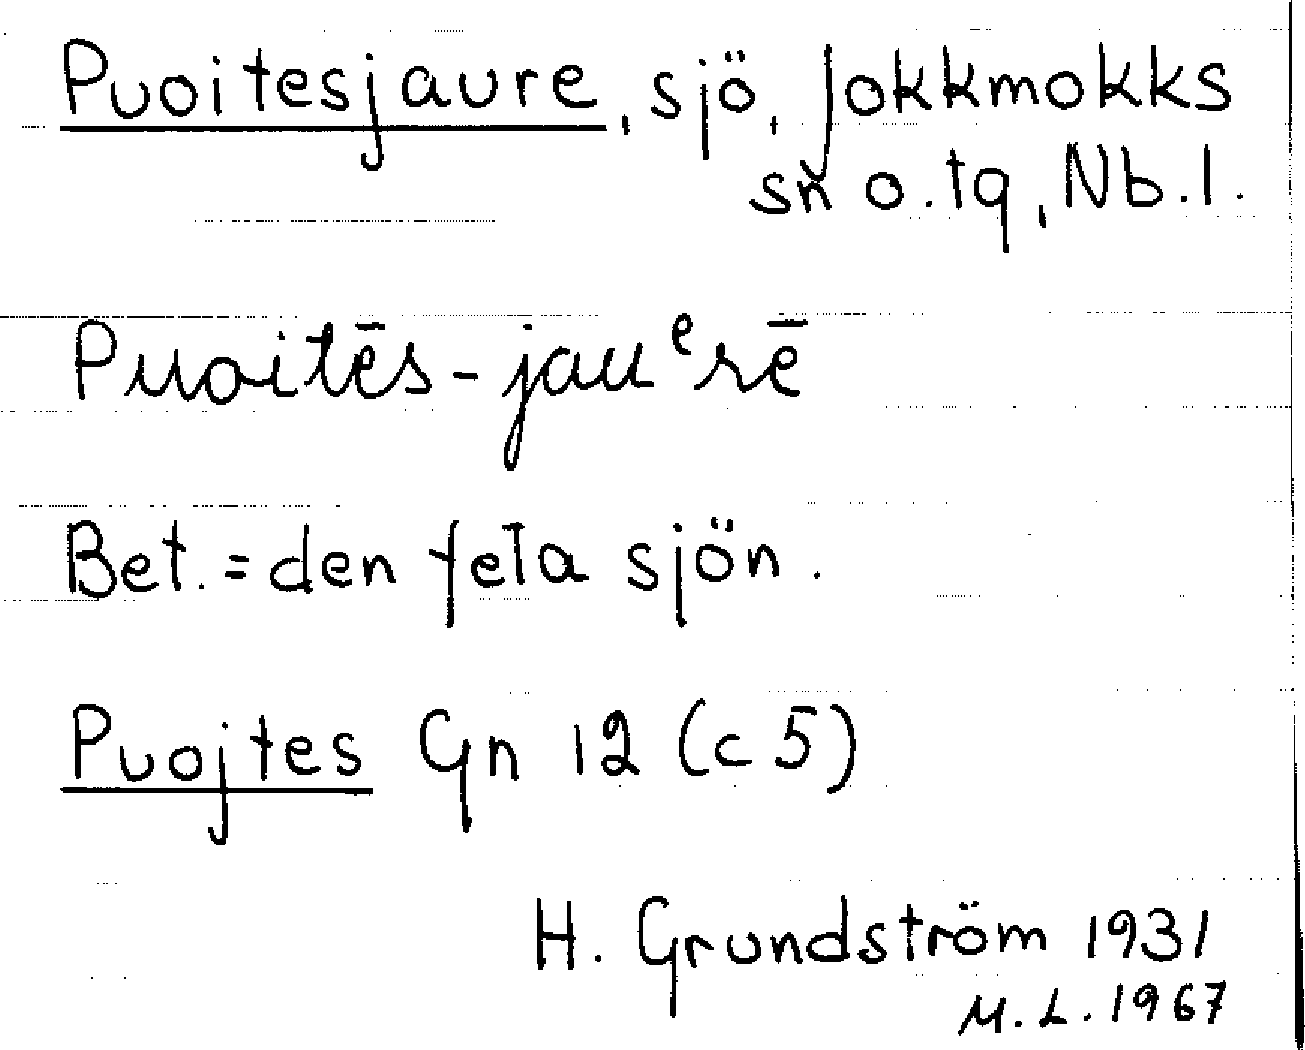 Puoitesjaure, sjö, Jokkmokks
sn o. tg, Nb. l.
Puoitēs-jauᵉrē
Bet. = den feta sjön.
Puojtes Gn 12 (c 5)
H. Grundström 1931
M. L. 1967